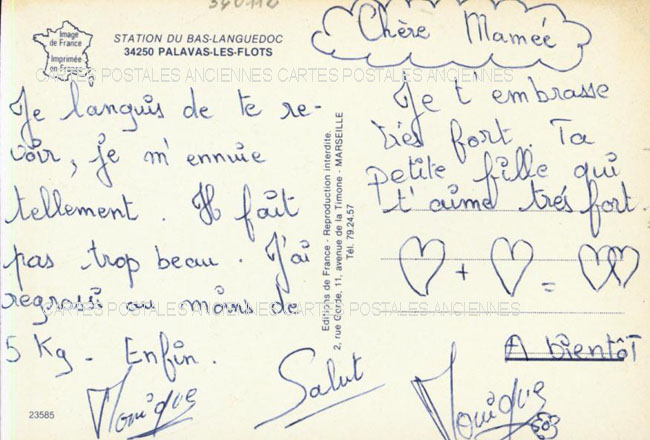 340112
Image
de France
Imprimée
en France
STATION DU BAS-LANGUEDOC
34250 PALAVAS-LES-FLOTS
CARTES POSTALES ANCIENNES CARTES POSTALES ANCIENNES
Chère Mamée
Je languis de te re-
voir, je m'ennuie
tellement. Il fait
pas trop beau. J'ai
regrossi au moins de
5 Kg. Enfin.
Monique
23585
Editions de France - Reproduction interdite.
2, rue Gorde, 11, avenue de la Timone - MARSEILLE
Tél. 79.24.57
Je t'embrasse
très fort. Ta
petite fille qui
t'aime trés fort.
+ =
CARTES POSTALES ANCIENNES CARTES POSTALES ANCIENNES
A bientôt
Salut
Monique